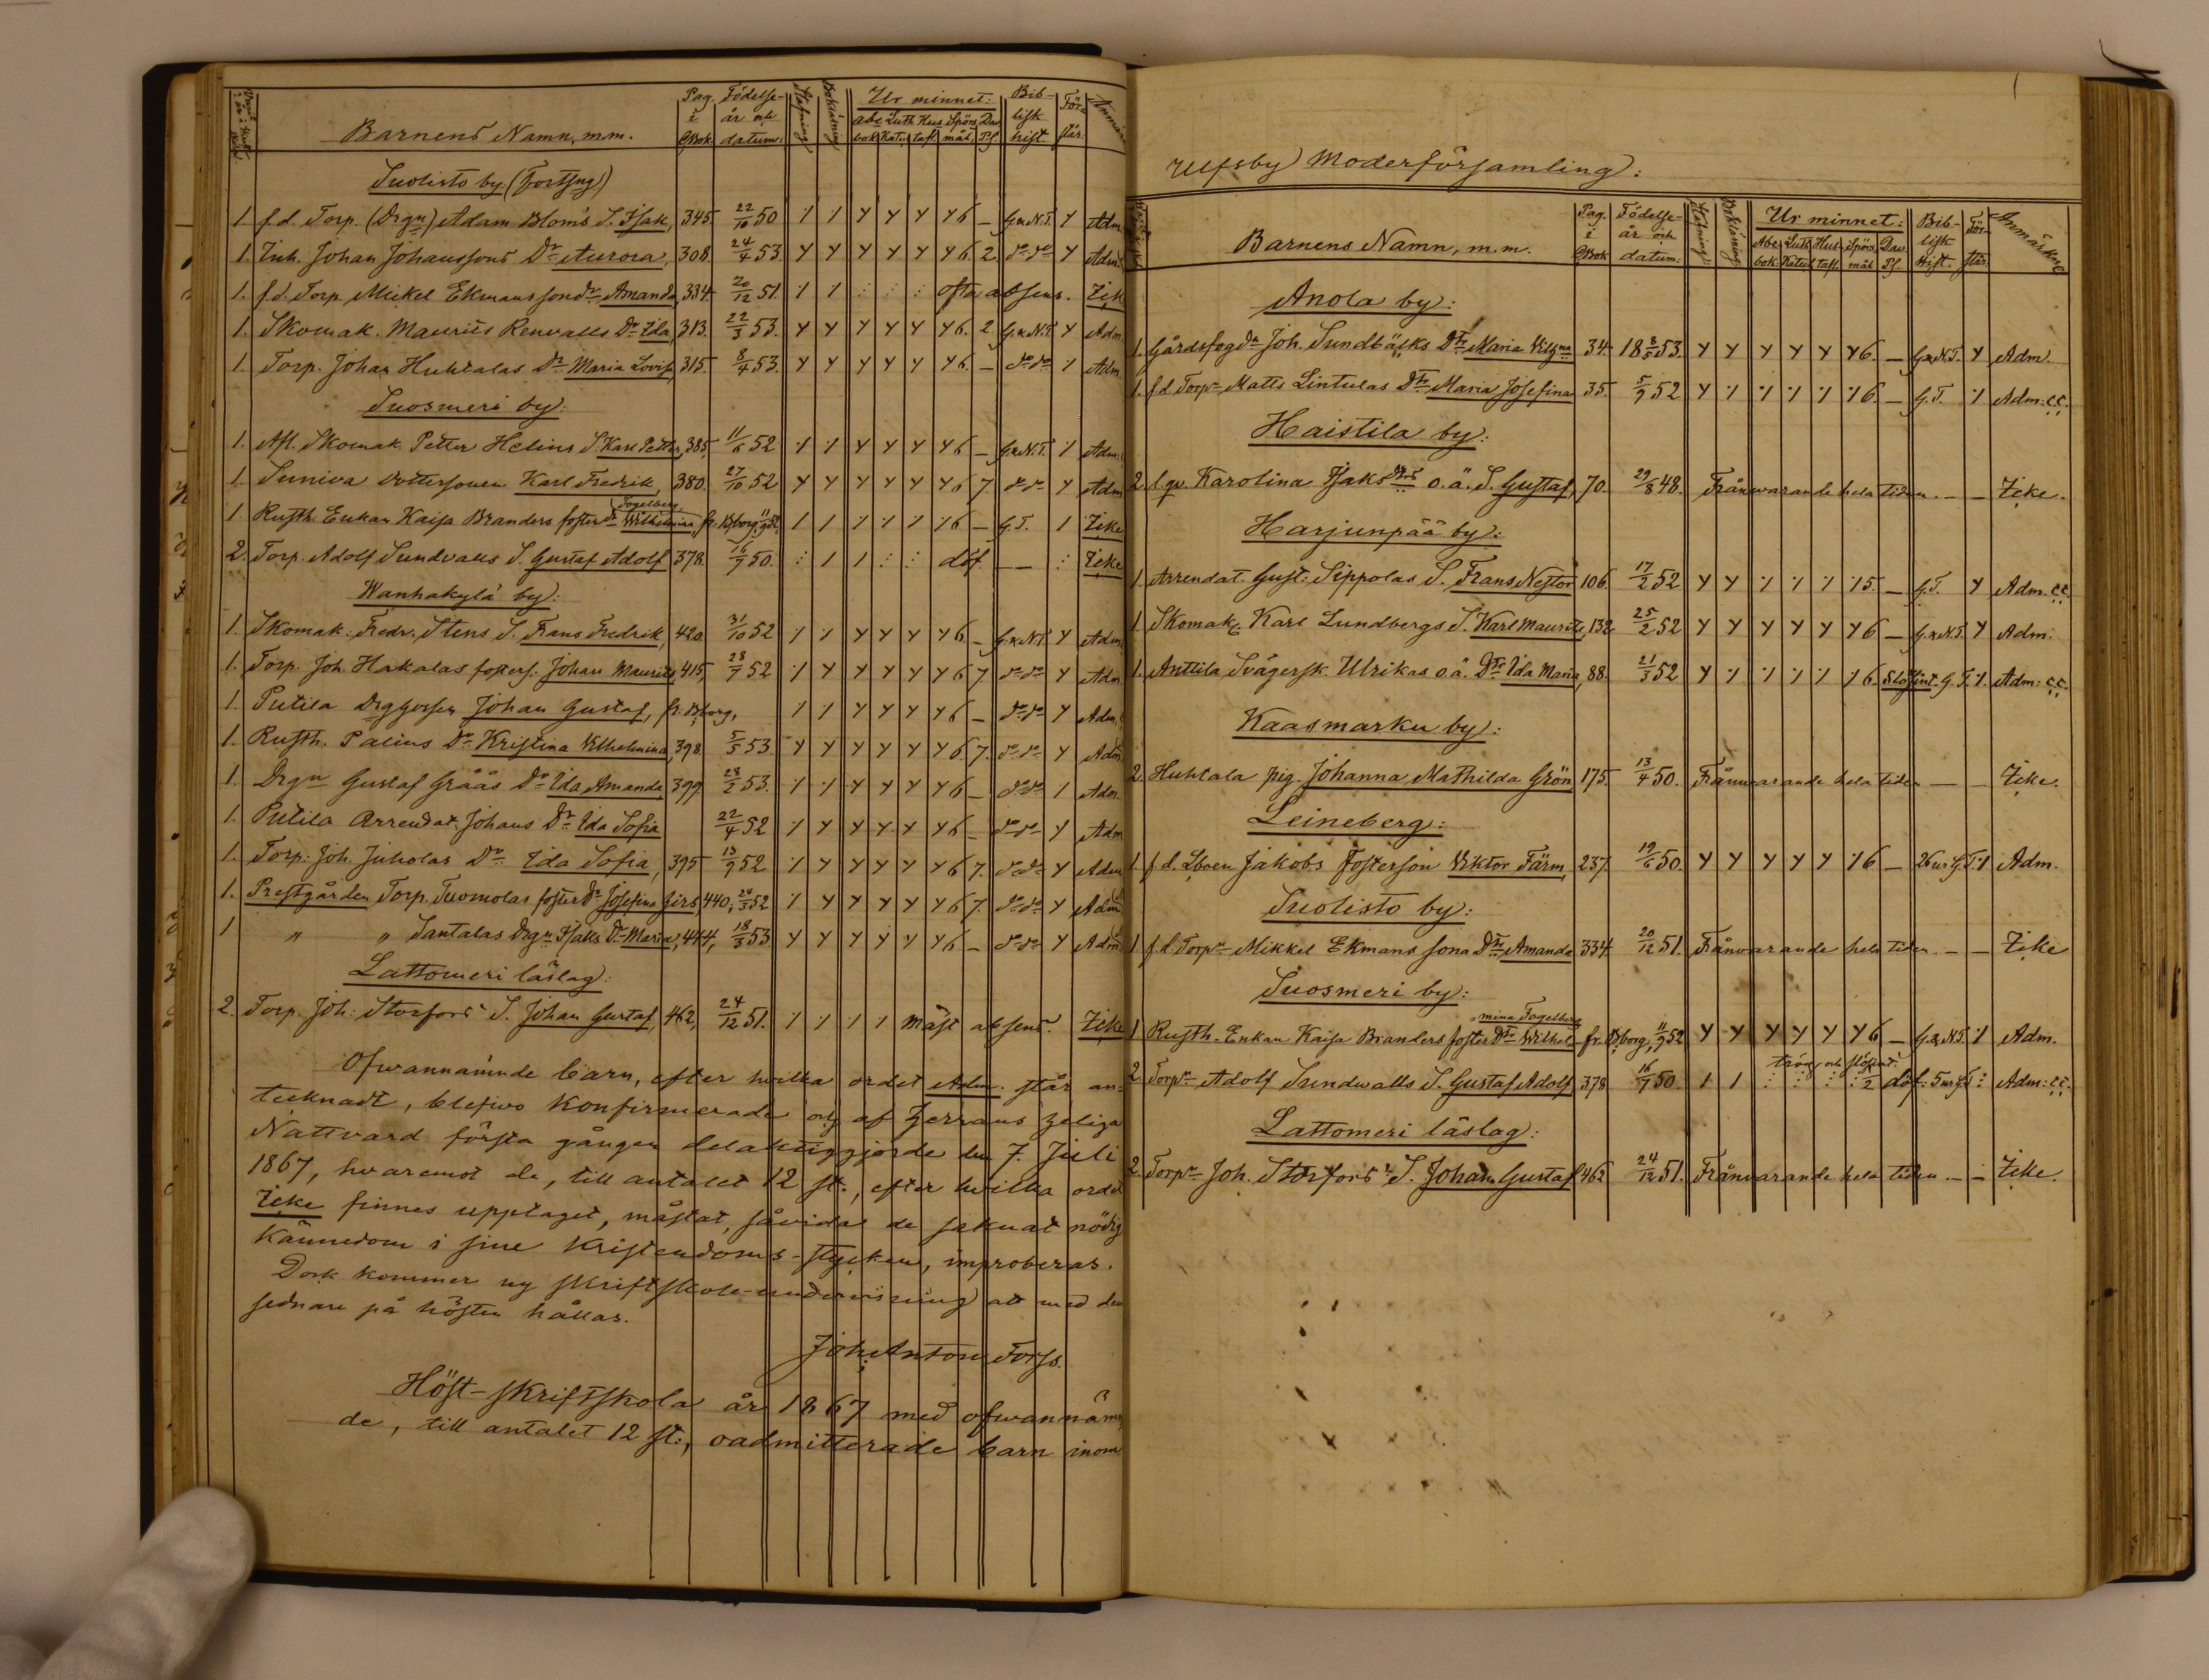 Barnens Namn, m.m. Pag. i Bok. Födelse-år och datum. Stafning Bokläsning Ur minnet: Abc bok. Luth. Katu. Hus tafl. Spörs mål. Dav. Ps. Biblisk hist. Förstår. Anmärk
Suolisto by. (Fortsng.)
1. f.d. Torp. (Drgn) Adam Bloms S. Isak, 345. 22/10 50 Y 6 — G. & N.T. Adm
1. Inh. Johan Johanssons Dr Aurora, 308. 24/4 53 Y 6. 2. do do Adm.
1. f.d. Torp. Mickel Ekmans sons Dr Amanda, 334. 20/12 51. ofta absens. Icke
1. Skomak. Maurits Renvalls Dr Ida, 313. 22/3 53. Y 6. 2 G. & N.T. Adm.
1. Torp. Johan Huhtalas Dr Maria Lovisa, 315. 8/4 53. Y 6. — do do Adm.
Suosmeri by:
1. Afl. Skomak. Petter Helins S. Karl Petter, 385, 11/6 52 Y 6 — G. & N.T. Adm.
1. Suniva dottersonen Karl Fredrik, 380. 27/10 52 Y 6 7. do do Adm
1. Rusth. Enkan Kaisa Branders foster Dr Wilhelmina Fogelberg, fr. Bjborg 11/9 52, 6 — G. T. Icke
2. Torp. Adolf Sundvalls S. Gustaf Adolf 378. 16/9 50. döf — — Icke
Wanhakylä by:
1. Skomak: Fredr. Stens S. Frans Fredrik, 420. 31/10 52 Y 6 — G. & N.T. Adm
1. Torp. Joh. Hakalas fosters: Johan Maurits, 415, 28/7 52 Y 6 7. do do Adm.
1. Putila Drggossen Johan Gustaf, fr. Bjborg, Y 6 — do do Adm.
1. Rusth. Palins Dr Kristina Vilhelmina, 398. 5/5 53. Y 6 7. do do Adm
1. Drgn Gustaf Gråås Dr Ida Amanda, 399. 28/2 53. Y 6 — do do Adm.
1. Putila Arrendat. Johans Dr Ida Sofia 22/4 52 Y 6 — do do Adm
1. Torp: Joh. Juholas Dr Ida Sofia, 395 13/9 52 Y 6 7. do do Adm
1. Prestgården Torp. Tuomolas foster Dr Josefina Jirs, 440, 24/3 52 Y 6 7. do do Adm
1 " " Santalas Drgn Isaks Dr Maria, 444, 18/3 53 Y 6 — do do Adm
Lattomeri läslag:
2. Torp. Joh: Storfors' S. Johan Gustaf, 462, 24/12 51. mäst absens. Icke
Ofwannämnde barn, efter hvilka ordet Adm. står an-
tecknadt, blefwo konfirmerade och af Herrans heliga
Nattvard första gången delaktiggjorde den 7. Juli
1867, hvaremot de, till antalet 12 st., efter hvilka ordet
Icke finnes upptaget, måstat, såvida de saknat nödig
kännedom i sine kristendoms-stycken, improberas.
Dock kommer ny skriftskole-undervisning att med dem
sednare på hösten hållas.
Joh. Anton Forss.
Höst-skriftskola år 1867 med ofwannämn-
de, till antalet 12 st:, oadmitterade barn inom
Ulfsby Moderförsamling:
Barnens Namn, m.m. Pag. i Bok Födelse-år och datum: Stafning: Bokläsning: Ur minnet: Abc bok. Luth. Katech. Hus-tafl. Spörs mål Dav. Ps. Biblisk Hist. Förstår. Anmärkn:
Anola by:
1. Gårdsfogdn Joh. Sundbäcks Dtr Maria Vilhna 34. 18 8/5 53. Y 6. — G. & N.T. Y Adm.
1. f.d. Torpn Matts Lintulas Dtr Maria Josefina 35. 5/9 52 6. — G. T. Adm: cc.
Haistila by:
2. lqv. Karolina Isaksdtrs o.ä. S. Gustaf, 70. 29/8 48. Frånvarande hela tiden. — — Icke.
Harjunpää by:
1. Arrendat. Gust: Sippolas S. Frans Nestor 106. 17/2 52 5. — G. T. Y Adm. cc
1. Skomak. Karl Lundbergs S. Karl Maurits, 132 25/2 52 Y 6 — G. & N.T. Y Adm.
1. Anttila Svägersk. Ulrikas o.ä. Dtr Ida Maria, 88. 21/3 52 6. Slöfint. G. T. Adm: cc.
Kaasmarku by:
2. Huhtala pig. Johanna Mathilda Grön, 175. 13/4 50. Frånvarande hela tiden — — Icke.
Leineberg:
1. f.d. Lboen Jakobs fosterson Viktor Färm, 237. 19/6 50. 6 — 26 ur G.T. Adm.
Suolisto by:
1. f.d. Torpn Mikkel Ekmans sons Dtr Amanda 334. 20/12 51. Frånvarande hela tiden. — — Icke
Suosmeri by:
1 Rusth. Enkan Kaisa Branders foster Dtr Wilhel-mina Fogelberg fr. Bjborg, 11/9 52 Y 6 — G. & N.T. Adm.
2. Torpn Adolf Sundwalls S. Gustaf Adolf, 378 16/9 50. trög och slöfint döf: 5 ur G.T. Adm: cc.
Lattomeri läslag:
2. Torpn Joh. Storfors' S. Johan Gustaf 462 24/12 51. Frånvarande hela tiden. — — Icke.